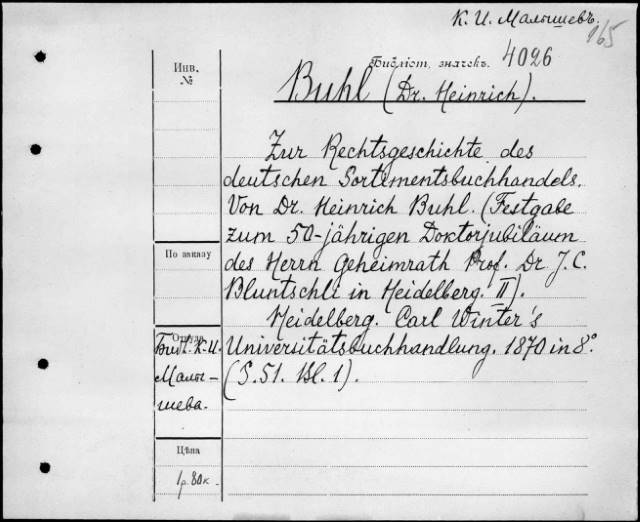 К. И. Малышевъ.
165
Библіот. значекъ. 4026
Инв.
№
Buhl (Dr. Heinrich).
Zur Rechtsgeschichte des
deutschen Sortimentsbuchhandels.
Von Dr. Heinrich Buhl. (Festgabe
zum 50-jährigen Doktorjubiläum
des Herrn Geheimrath Prof. Dr J. C.
Bluntschli in Heidelberg. II).
Heidelberg. Carl Winter's
Universitätsbuchhandlung. 1870 in 8°.
(S. 51. Bl. 1).
По заказу
Откуда
Библ. К. И.
Малы-
шева.
Цѣна
1 р. 80 к.